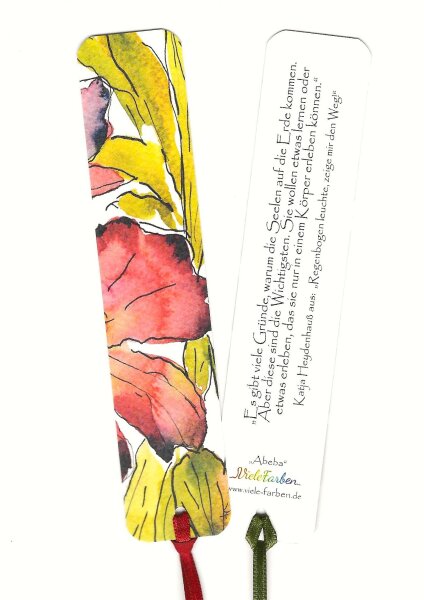 „Es gibt viele Gründe, warum die Seelen auf die Erde kommen.
Aber diese sind die Wichtigsten. Sie wollen etwas lernen oder
etwas erleben, das sie nur in einem Körper erleben können.“
Katja Heydenhauß aus: „Regenbogen leuchte, zeige mir den Weg!“
„Abeba“
VieleFarben
www.viele-farben.de